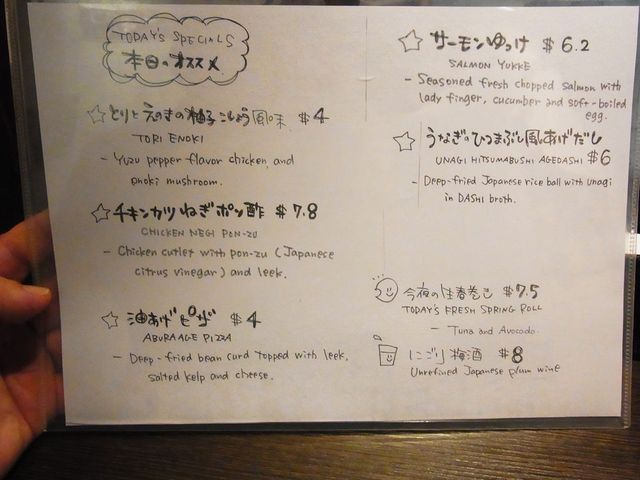 TODAY'S SPECIALS
本日のオススメ
とりとえのきの柚子こしょう風味 $4
TORI ENOKI
- Yuzu pepper flavor chicken and
enoki mushroom.
チキンカツねぎポン酢 $7.8
CHICKEN NEGI PON-ZU
- Chicken cutlet with pon-zu (Japanese
citrus vinegar) and leek.
油あげピザ $4
ABURAAGE PIZZA
- Deep-fried bean curd topped with leek,
salted kelp and cheese.
サーモンゆっけ $6.2
SALMON YUKKE
- Seasoned fresh chopped salmon with
lady finger, cucumber and soft-boiled
egg.
うなぎのひつまぶし風あげだし
UNAGI HITSUMABUSHI AGEDASHI $6
- Deep-fried Japanese rice ball with unagi
in DASHI broth.
今夜の生春巻き $7.5
TODAY'S FRESH SPRING ROLL
- Tuna and Avocado.
にごり梅酒 $8
Unrefined Japanese plum wine